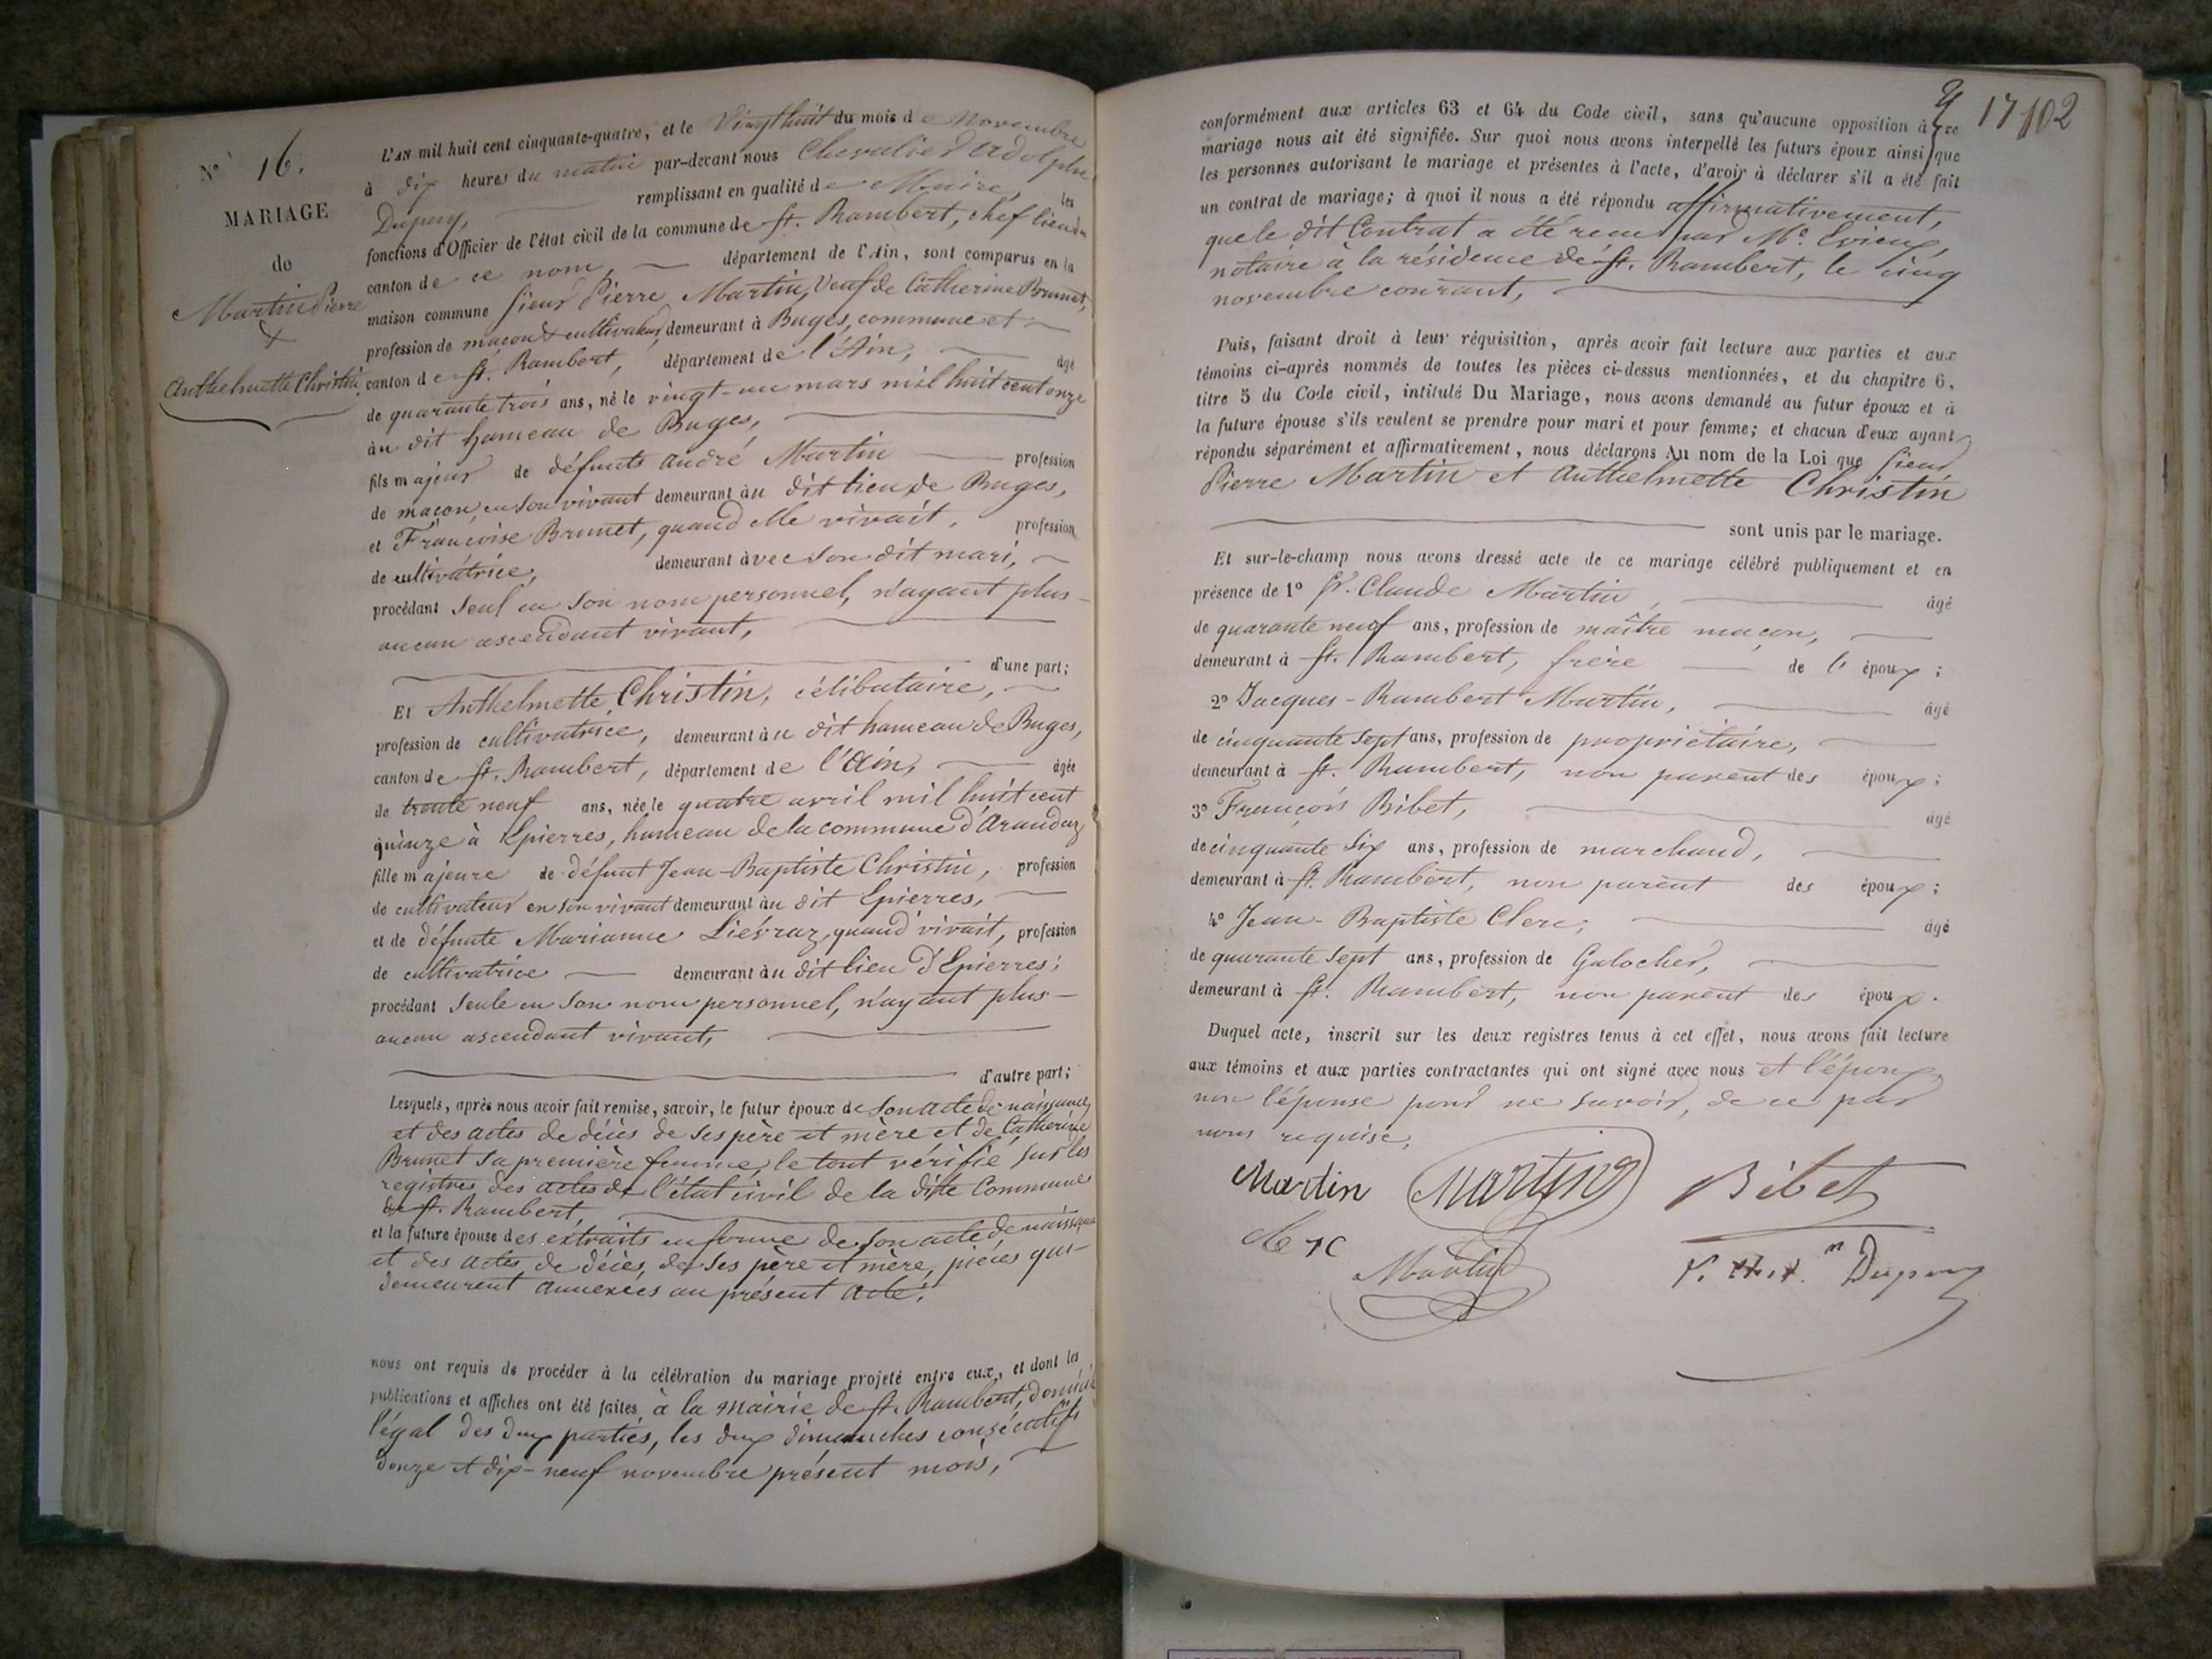 N° 16.
MARIAGE
de
Martin Pierre
&
Anthelmette Christin
L'AN mil huit cent cinquante-quatre, et le Vingt huit du mois de Novembre
à dix heures du matin par-devant nous Chevalier Adolphe
Dupuy, remplissant en qualité de Maire, les
fonctions d'Officier de l'état civil de la commune de St. Rambert, chef lieu du
canton de ce nom, département de l'Ain, sont comparus en la
maison commune sieur Pierre Martin, Veuf de Catherine Brunet,
profession de maçon & cultivateur, demeurant à Buges, commune et
canton de St. Rambert, département de l'Ain, âgé
de quarante trois ans, né le vingt-un mars mil huit cent onze
au dit hameau de Buges,
fils majeur de défunts André Martin profession
de maçon, en son vivant demeurant au dit lieu de Buges,
et Françoise Brunet, quand elle vivait, profession
de cultivatrice, demeurant avec son dit mari,
procédant seul en son nom personnel, n'ayant plus
aucun ascendant vivant,
d'une part;
Et Anthelmette Christin, célibataire,
profession de cultivatrice, demeurant au dit hameau de Buges,
canton de St. Rambert, département de l'Ain, âgée
de trente neuf ans, née le quatre avril mil huit cent
quinze à Epierres, hameau de la commune d'Arandaz
fille majeure de défunt Jean-Baptiste Christin, profession
de cultivateur en son vivant demeurant au dit Epierres,
et de défunte Marianne Liévraz, quand vivait, profession
de cultivatrice demeurant au dit lieu d'Epierres;
procédant seule en son nom personnel, n'ayant plus
aucun ascendant vivant,
d'autre part;
Lesquels, après nous avoir fait remise, savoir, le futur époux de son acte de naissance,
et des actes de décès de ses père et mère et de Catherine
Brunet sa première femme, le tout vérifié sur les
registres des actes de l'état civil de la dite Commune
de St. Rambert,
et la future épouse des extraits en forme de son acte de naissance
et des actes de décès de ses père et mère, pièces qui
demeurent annexées au présent acte.
nous ont requis de procéder à la célébration du mariage projeté entre eux, et dont les
publications et affiches ont été faites à la mairie de St. Rambert, domicile
légal des deux parties, les deux dimanches consécutifs
douze et dix-neuf novembre présent mois,
17 102
conformément aux articles 63 et 64 du Code civil, sans qu'aucune opposition à ce
mariage nous ait été signifiée. Sur quoi nous avons interpellé les futurs époux ainsi que
les personnes autorisant le mariage et présentes à l'acte, d'avoir à déclarer s'il a été fait
un contrat de mariage; à quoi il nous a été répondu affirmativement,
que le dit Contrat a été reçu par Me. Evieux,
notaire à la résidence de St. Rambert, le cinq
novembre courant,
Puis, faisant droit à leur réquisition, après avoir fait lecture aux parties et aux
témoins ci-après nommés de toutes les pièces ci-dessus mentionnées, et du chapitre 6,
titre 5 du Code civil, intitulé Du Mariage, nous avons demandé au futur époux et à
la future épouse s'ils veulent se prendre pour mari et pour femme; et chacun d'eux ayant
répondu séparément et affirmativement, nous déclarons Au nom de la Loi que sieur
Pierre Martin et Anthelmette Christin
sont unis par le mariage.
Et sur-le-champ nous avons dressé acte de ce mariage célébré publiquement et en
présence de 1° Sr. Claude Martin, âgé
de quarante neuf ans, profession de maître maçon,
demeurant à St. Rambert, frère de l'époux;
2° Jacques-Rambert Martin, âgé
de cinquante sept ans, profession de propriétaire,
demeurant à St. Rambert, non parent des époux;
3° François Bibet, âgé
de cinquante six ans, profession de marchand,
demeurant à St. Rambert, non parent des époux;
4° Jean-Baptiste Clerc; âgé
de quarante sept ans, profession de Galocher,
demeurant à St. Rambert, non parent des époux.
Duquel acte, inscrit sur les deux registres tenus à cet effet, nous avons fait lecture
aux témoins et aux parties contractantes qui ont signé avec nous et l'époux,
non l'épouse pour ne savoir, de ce par
nous requise.
Martin Martin Bibet
Clerc
Martin Dupuy